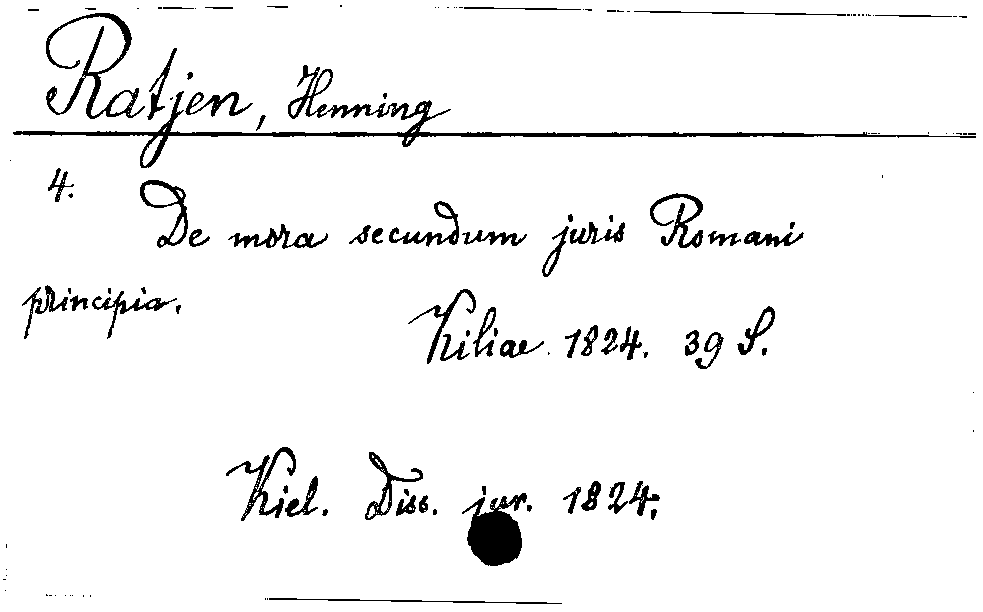 Ratjen, Henning
4.
De mora secundum juris Romani
principia.
Kiliae. 1824. 39 S.
Kiel. Diss. jur. 1824.